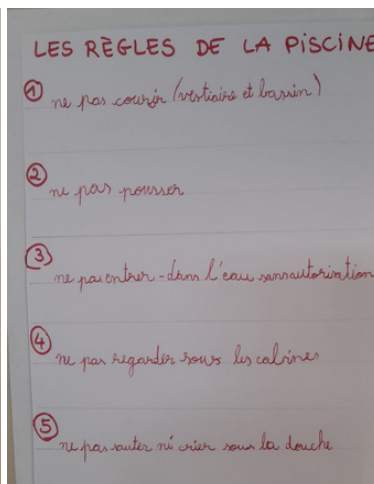 LES RÈGLES DE LA PISCINE
① ne pas courir (vestiaire et bassin)
② ne pas pousser
③ ne pas entrer - dans l'eau sans autorisation
④ ne pas regarder sous les cabines
⑤ ne pas sauter ni crier sous la douche